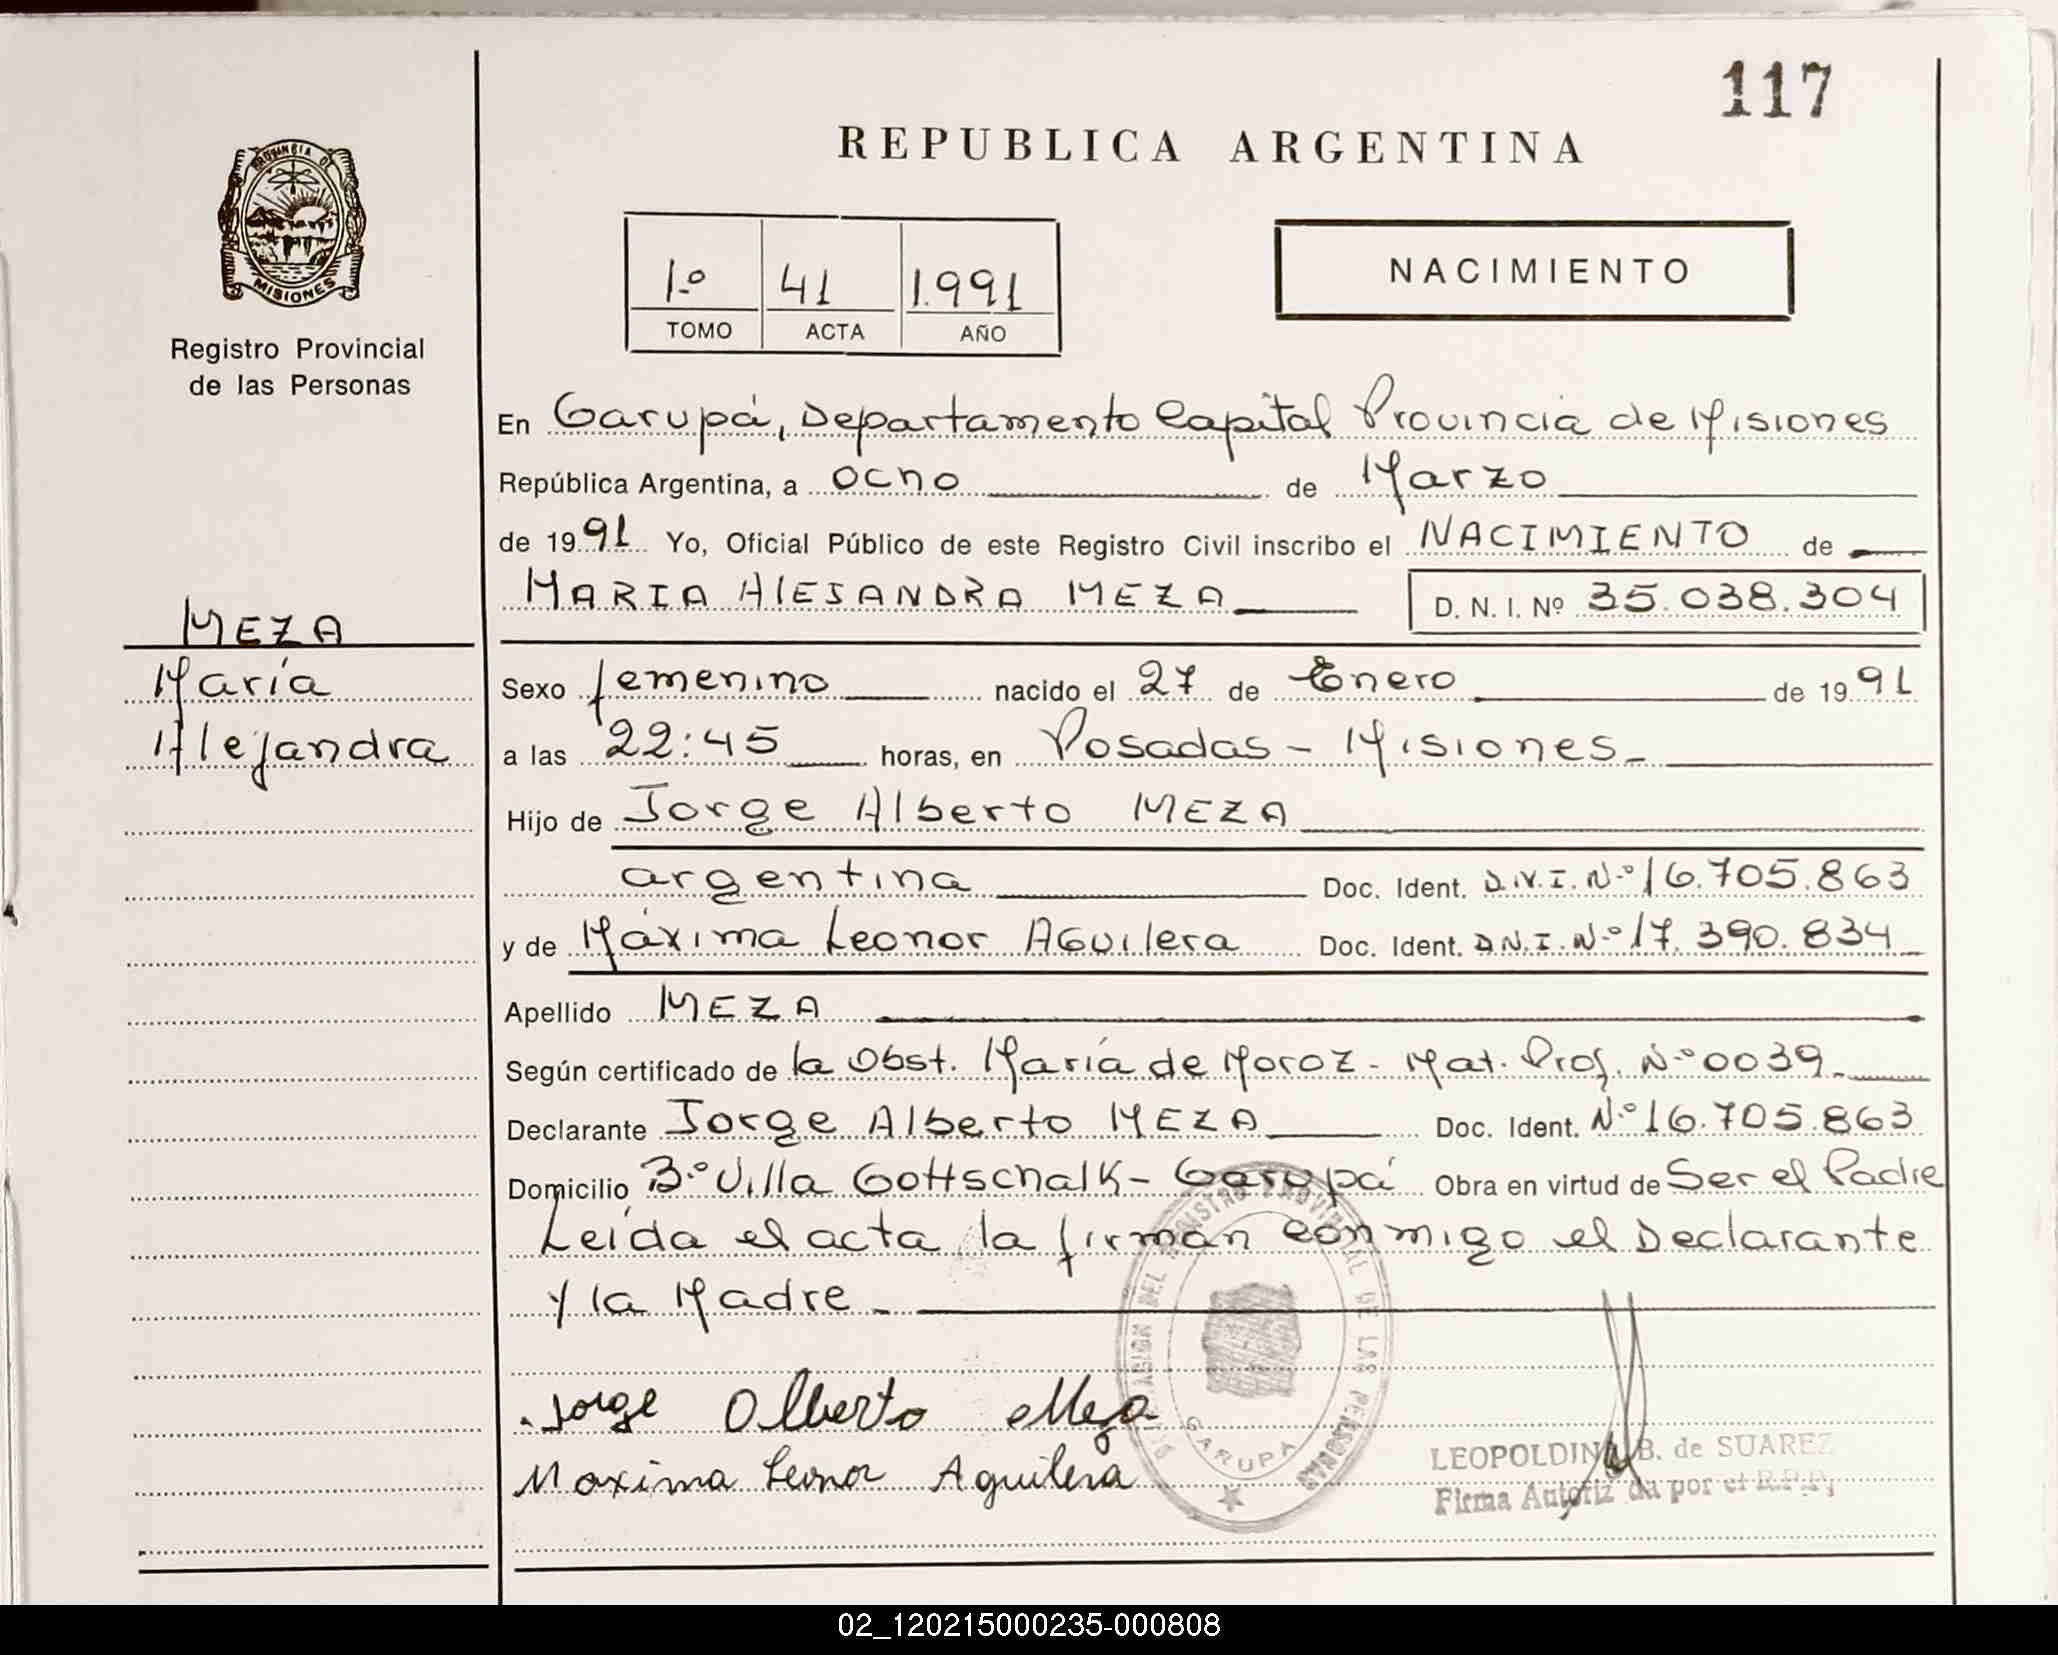 117
REPUBLICA ARGENTINA
PROVINCIA DE
MISIONES
Registro Provincial
de las Personas
1.º 41 1.991
TOMO ACTA AÑO
NACIMIENTO
En Garupá, Departamento Capital Provincia de Misiones
República Argentina, a ocho de Marzo
de 1991 Yo, Oficial Público de este Registro Civil inscribo el NACIMIENTO de
MARIA AlEJANDRA MEZA D. N. I. Nº 35.038.304
MEZA
María
Alejandra
Sexo femenino nacido el 27 de Enero de 1991
a las 22:45 horas, en Posadas - Misiones_
Hijo de Jorge Alberto MEZA
argentina Doc. Ident. D.N.I. N.º 16.705.863
y de Máxima Leonor AGuilera Doc. Ident. D.N.I. N.º 17.390.834
Apellido MEZA
Según certificado de la Obst. María de Moroz - Mat. Prof. N.º 0039.
Declarante Jorge Alberto MEZA Doc. Ident. N.º 16.705.863
Domicilio B.º Villa Gottschalk - Garupá Obra en virtud de Ser el Padre
Leída el acta, la firman conmigo el Declarante
y la Madre
Jorge Alberto Meza
Maxima Leonor Aguilera
REGISTRO PROVINCIAL DE LAS PERSONAS
GARUPA
LEOPOLDINA B. de SUAREZ
Firma Autoriz da por el R.P.P.
02_120215000235-000808